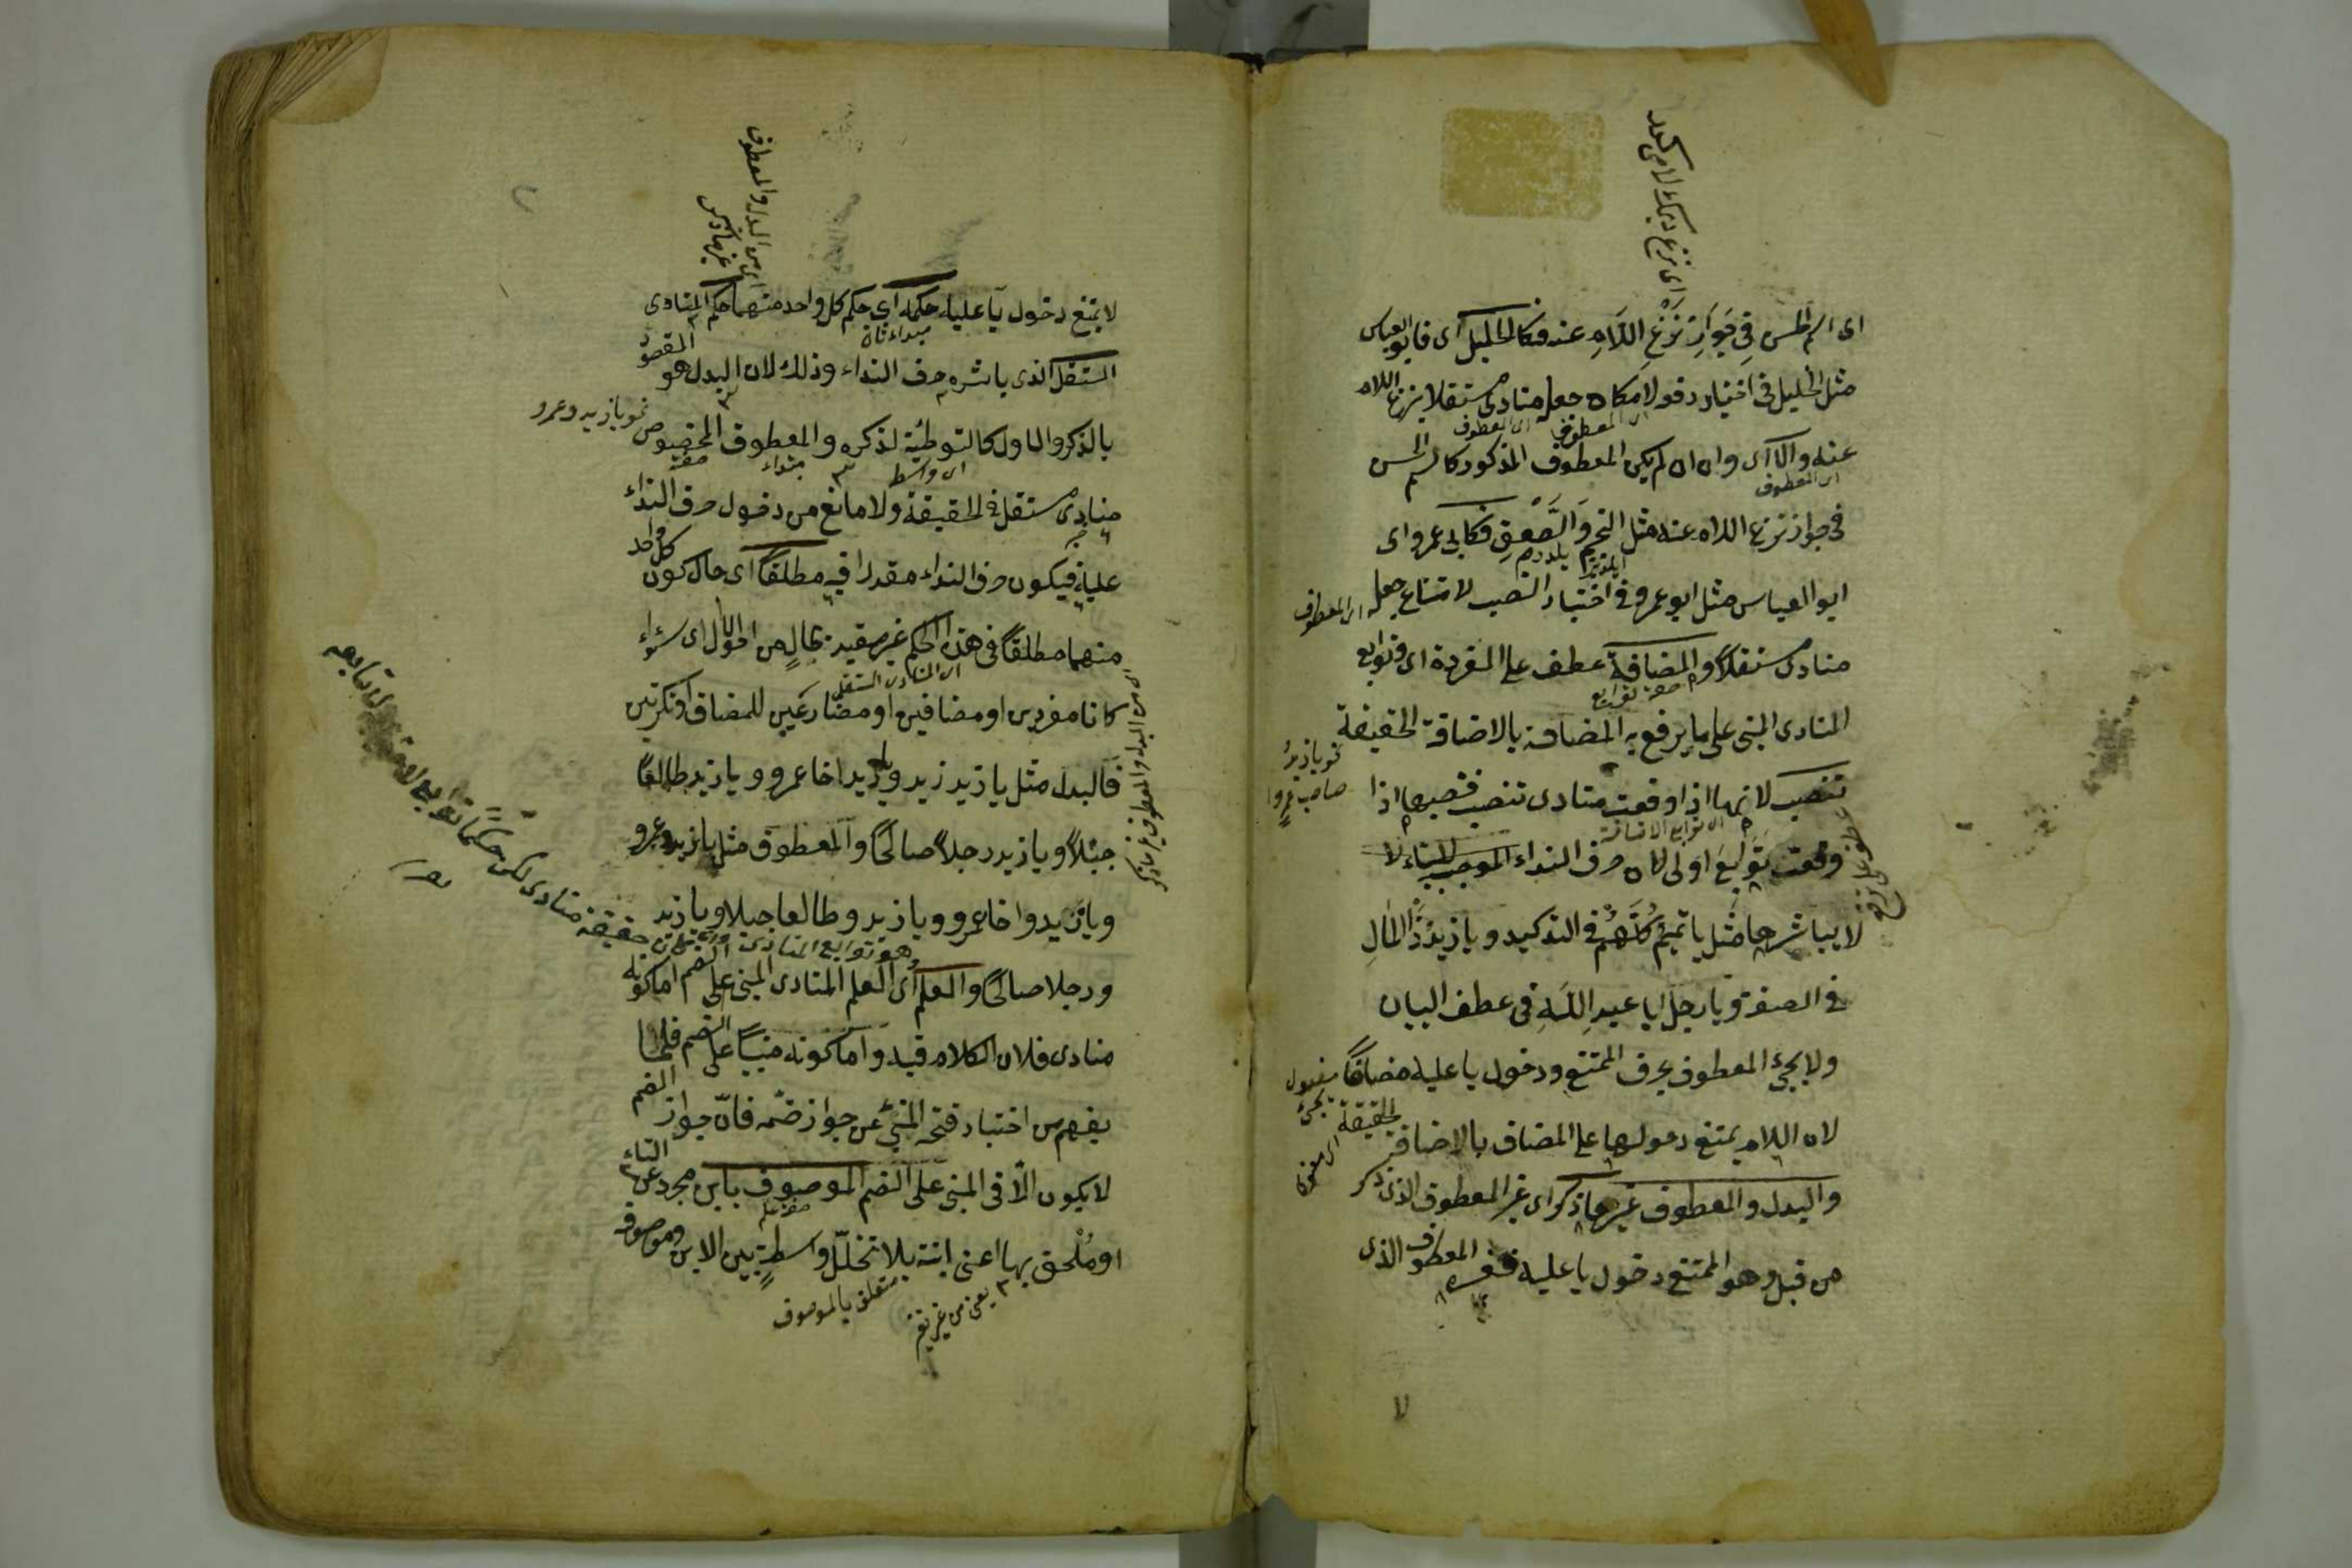 اى اسم الحسن فى جَوازِ نَزْعِ اللّامِ عنه فكالخليل اى فابو العباس
مثل الخليل فى اختيار رفعه لامكان جعله منادى مستقلا بنزع اللام
عنه والا اى وان لم يكن المعطوف المذكور كالحسن
فى جواز نزع اللام عنه مثل النجم والصَّعِق فكابى عمرو اى
ابو العباس مثل ابو عمرو فى اختيار النصب لامتناع جعله
منادى مستقلاً والمضافة عطف على المفردة اى وتوابع
المنادى المبنى على ما يرفع به المضافة بالاضافة الحقيقة
تنصب لانها اذا وقعت منادى تنصب فنصبها اذا
وقعت توابعَ اولى لان حرف النداء الموجب للبناء لا
لا يباشرها مثل يا تميمُ كُلَّهُمْ فى التوكيد ويا زيدُ ذَا المَالِ
فى الصفة ويا رجل ابا عبدِ اللّهِ فى عطف البيان
ولا يجئ المعطوف بحرف الممتنع دخول يا عليه مضافاً
لان اللام يمتنع دخولها على المضاف بالاضافة الحقيقة
والبدل والمعطوف غير ما ذكر اى غير المعطوف الذى ذكر
من قبل وهو الممتنع دخول يا عليه فغيره المعطوف الذى
اى المعطوف
اى المعطوف
صفة توابع
نحو يا زيدُ
صاحب عمرو
اى توابع الاضافة
لا يمتنع دخول يا عليه حكمه اى حكم كل واحد منهما حكم المنادى
المستقل الذى باشره حرف النداء وذلك لان البدل هو المقصود
بالذكر والاول كالتوطئة لذكره والمعطوف المخصوص
منادى مستقل فى الحقيقة ولا مانع من دخول حرف النداء
عليه فيكون حرف النداء مقدرا فيه مطلقاً اى حال كون كل واحد
منهما مطلقاً فى هذا الحكم غير مقيد بحالٍ من الاحوال اى سواء
كانا مفردين او مضافين او مضارعين للمضاف او نكرتين
فالبدل مثل يا زيد زيد ويا زيد اخا عمرو ويا زيد طالعًا
جبلاً ويا زيد رجلاً صالحًا والمعطوف مثل يا زيد وعمرو
ويا زيد واخا عمرو ويا زيد وطالعا جبلا ويا زيد
ورجلا صالحًا والعلم اى العلم المنادى المبنى على الضم اما كونه
منادى فلان الكلام فيه واما كونه مبنيًا على الضم فلما
يفهم من اختيار فتحه المنبئ عن جواز ضمه فانّ جواز الضم
لا يكون الّا فى المبنى على الضم الموصوف بابن مجرد عن التاء
او مُلحق بها اعنى ابنة بلا تخلّل واسطةٍ بين الابن وموصوفه
مبتداء ثان
نحو يا زيد وعمرو
اى واسط
مبتداء
صفة
اى المنادى المستقل
متعلق بالموصوف